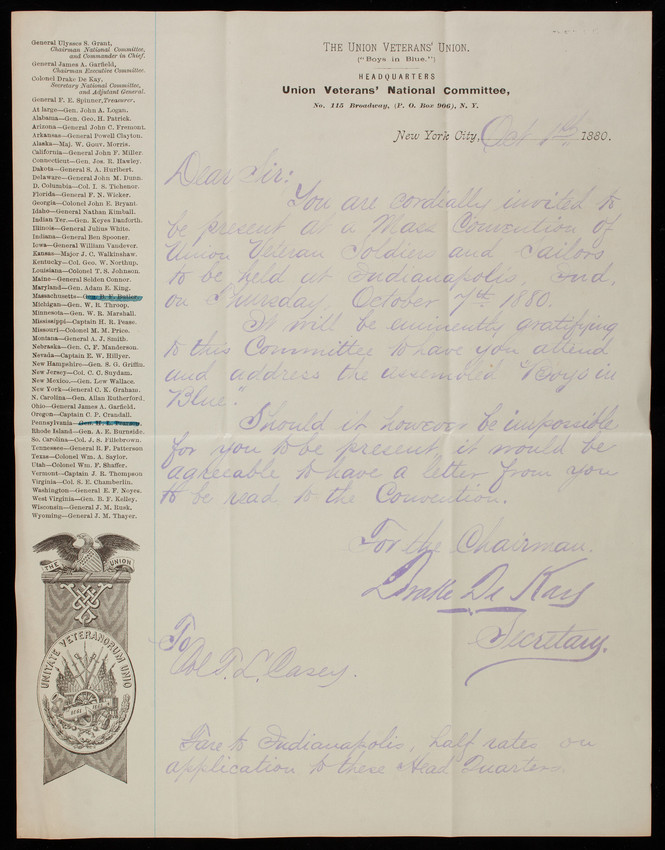 General Ulysses S. Grant,
Chairman National Committee,
and Commander in Chief.
General James A. Garfield,
Chairman Executive Committee.
Colonel Drake De Kay,
Secretary National Committee,
and Adjutant General.
General F. E. Spinner, Treasurer.
At large—Gen. John A. Logan.
Alabama—Gen. Geo. H. Patrick.
Arizona—General John C. Fremont.
Arkansas—General Powell Clayton.
Alaska—Maj. W. Gouv. Morris.
California—General John F. Miller.
Connecticut—Gen. Jos. R. Hawley.
Dakota—General S. A. Hurlbert.
Delaware—General John M. Dunn.
D. Columbia—Col. I. S. Tichenor.
Florida—General F. N. Wicker.
Georgia—Colonel John E. Bryant.
Idaho—General Nathan Kimball.
Indian Ter.—Gen. Keyes Danforth.
Illinois—General Julius White.
Indiana—General Ben Spooner.
Iowa—General William Vandever.
Kansas—Major J. C. Walkinshaw.
Kentucky—Col. Geo. W. Northup.
Louisiana—Colonel T. S. Johnson.
Maine—General Selden Connor.
Maryland—Gen. Adam E. King.
Massachusetts—Gen. B. F. Butler.
Michigan—Gen. W. R. Throop.
Minnesota—Gen. W. R. Marshall.
Mississippi—Captain H. R. Pease.
Missouri—Colonel M. M. Price.
Montana—General A. J. Smith.
Nebraska—Gen. C. F. Manderson.
Nevada—Captain E. W. Hillyer.
New Hampshire—Gen. S. G. Griffin.
New Jersey—Col. C. C. Suydam.
New Mexico—Gen. Lew Wallace.
New York—General C. K. Graham.
N. Carolina—Gen. Allan Rutherford.
Ohio—General James A. Garfield.
Oregon—Captain C. P. Crandall.
Pennsylvania—Gen.
Rhode Island—Gen. A. E. Burnside.
So. Carolina—Col. J. S. Fillebrown.
Tennessee—General R. F. Patterson
Texas—Colonel Wm. A. Saylor.
Utah—Colonel Wm. F. Shaffer.
Vermont—Captain J. R. Thompson
Virginia—Col. S. E. Chamberlin.
Washington—General E. F. Noyes.
West Virginia—Gen. B. F. Kelley.
Wisconsin—General J. M. Rusk.
Wyoming—General J. M. Thayer.
THE UNION
UNITATE VETERANORUM UNIO
The Union Veterans' Union.
("Boys in Blue.")
HEADQUARTERS
Union Veterans' National Committee,
No. 115 Broadway, (P. O. Box 906), N. Y.
New York City, Oct 1st 1880.
Dear Sir:
You are cordially invited to
be present at a Mass Convention of
Union Veteran Soldiers and Sailors
to be held at Indianapolis, Ind,
on Thursday, October 7th 1880.
It will be eminently gratifying
to this Committee to have you attend
and address the assembled "Boys in
Blue".
Should it however be impossible
for you to be present it would be
agreeable to have a letter from you
to be read to the Convention.
For the Chairman.
Drake De Kay
Secretary.
To
Col T. L. Casey.
Fare to Indianapolis, half rates on
application to these Head Quarters.